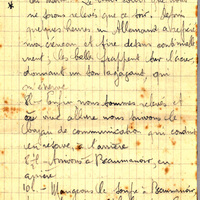 ne serons relevés que ce soir. Depuis
quelques heures un Allemand a repéré
mon créneau et tire dessus continuelle-
ment; les balles frappent sur l'acier
donnant un son agaçant, qui
m'énerve.
8h. - Enfin nous sommes relevés et
nous suivons le
boyau de communication qui conduit
en réserve, à l'arrière
8-1 - Arrivons à Beaumanoir, en
arrière
10h. - Mangeons la soupe à Beaumanoir,